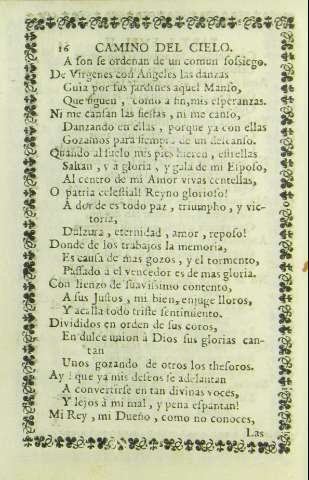 16 CAMINO DEL CIELO.
A son se ordenan de un comun sossiego.
De Virgenes con Angeles las danzas
Guia por sus jardines aquel Manso,
Que siguen, como a fin, mis esperanzas.
Ni me cansan las fiestas, ni me canso,
Danzando en ellas, porque ya con ellas
Gozamos para siempre de un descanso.
Quando al suelo mis pies hieren, estrellas
Saltan, y à gloria, y gala de mi Esposo,
Al centro de mi Amor vivas centellas,
O patria celestial! Reyno glorioso!
A donde es todo paz, triumpho, y vic-
toria,
Dulzura, eternidad, amor, reposo!
Donde de los trabajos la memoria,
Es causa de mas gozos, y el tormento,
Passado à el vencedor es de mas gloria.
Con lienzo de suavissimo contento,
A sus Justos, mi bien, enjuge lloros,
Y acalla todo triste sentimiento.
Divididos en orden de sus coros,
En dulce union à Dios sus glorias can-
tan
Unos gozando de otros los thesoros.
Ay! que ya mis deseos se adelantan
A convertirse en tan divinas voces,
Y lejos à mi mal, y pena espantan!
Mi Rey, mi Dueño, como no conoces,
Las